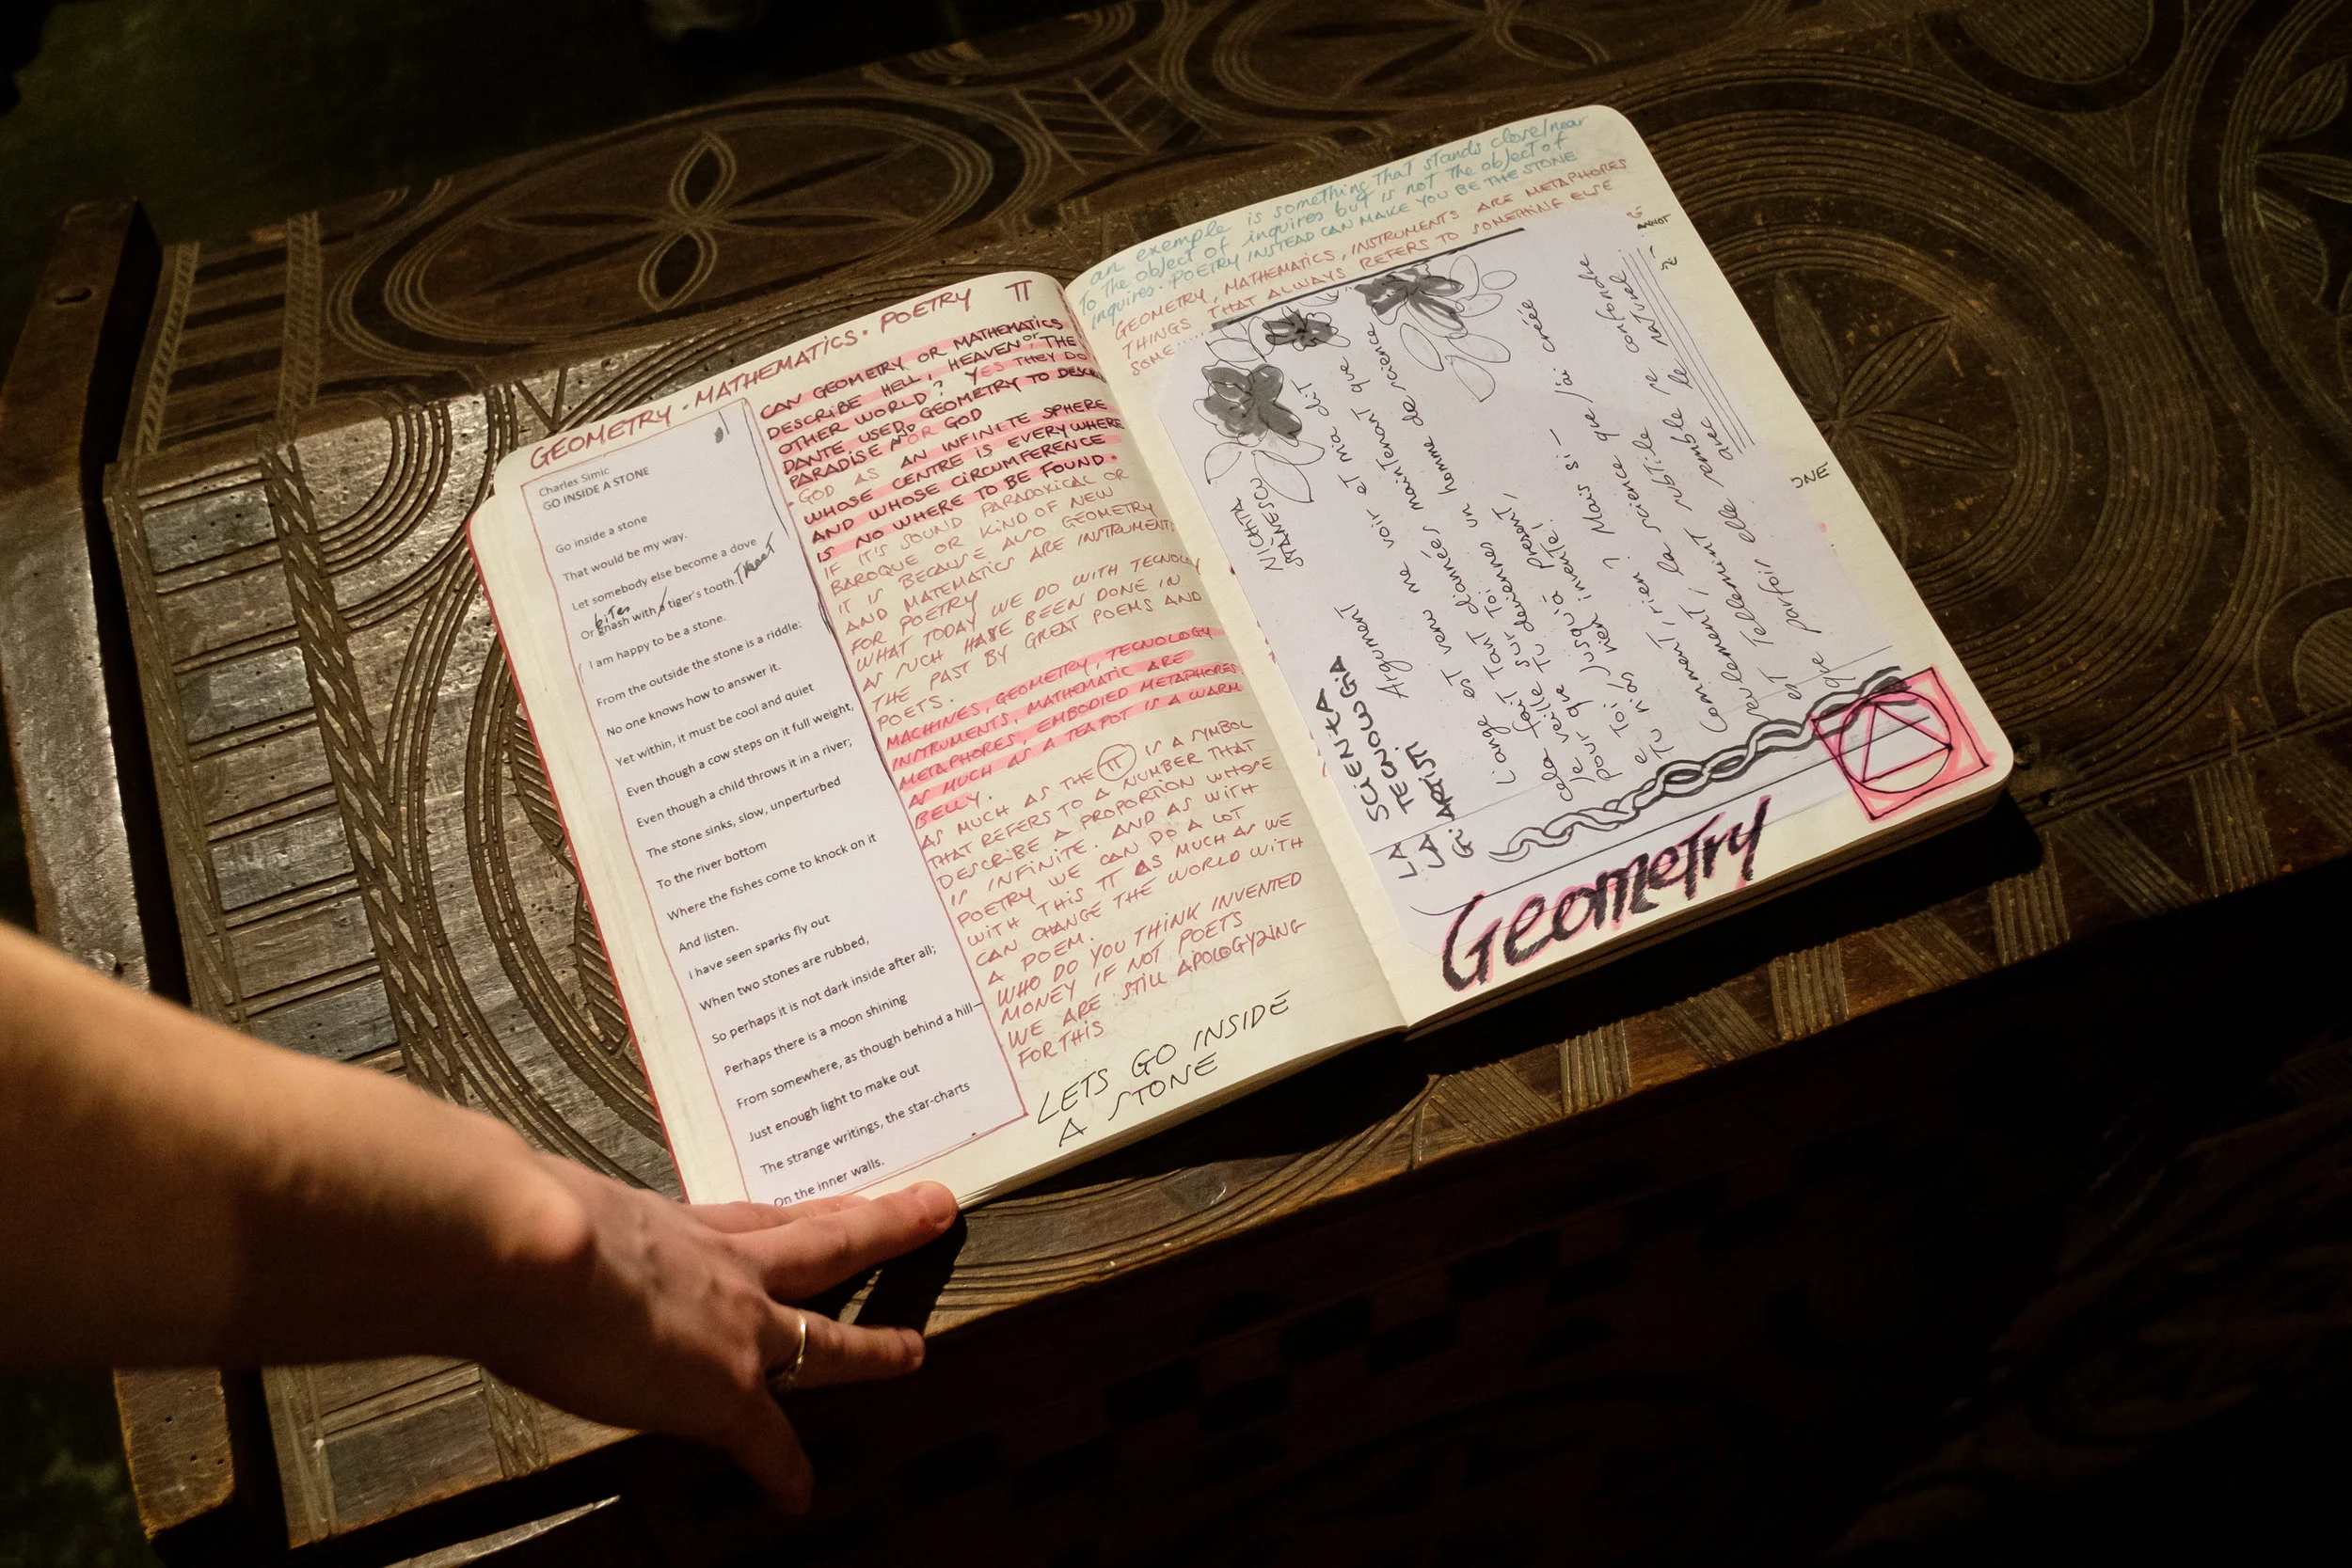 GEOMETRY · MATHEMATICS · POETRY π
Charles Simic
GO INSIDE A STONE
Go inside a stone
That would be my way.
Let somebody else become a dove
Or gnash with a tiger's tooth.
bites
I am happy to be a stone.
From the outside the stone is a riddle:
No one knows how to answer it.
Yet within, it must be cool and quiet
Even though a cow steps on it full weight,
Even though a child throws it in a river;
The stone sinks, slow, unperturbed
To the river bottom
Where the fishes come to knock on it
And listen.
I have seen sparks fly out
When two stones are rubbed,
So perhaps it is not dark inside after all;
Perhaps there is a moon shining
From somewhere, as though behind a hill—
Just enough light to make out
The strange writings, the star-charts
On the inner walls.
CAN GEOMETRY OR MATHEMATICS
DESCRIBE HELL, HEAVEN or THE
OTHER WORLD? YES THEY DO
DANTE USED GEOMETRY TO DESCRIBE
PARADISE AND OR GOD
GOD AS AN INFINITE SPHERE
WHOSE CENTRE IS EVERYWHERE
AND WHOSE CIRCUMFERENCE
IS NO WHERE TO BE FOUND.
IF IT'S SOUND PARADOXICAL OR
BAROQUE OR KIND OF NEW
IT IS BECAUSE ALSO GEOMETRY
AND MATEMATICS ARE INSTRUMENTS
FOR POETRY
WHAT TODAY WE DO WITH TECNOLOGY
AS SUCH HAVE BEEN DONE IN
THE PAST BY GREAT POEMS AND
POETS.
MACHINES, GEOMETRY, TECNOLOGY
INSTRUMENTS, MATHEMATIC ARE
METAPHORES, EMBODIED METAPHORES
AS MUCH AS A TEAPOT IS A WARM
BELLY.
AS MUCH AS THE π IS A SYMBOL
THAT REFERS TO A NUMBER THAT
DESCRIBE A PROPORTION WHOSE
IS INFINITE. AND AS WITH
POETRY WE CAN DO A LOT
WITH THIS π AS MUCH AS WE
CAN CHANGE THE WORLD WITH
A POEM.
WHO DO YOU THINK INVENTED
MONEY IF NOT POETS
WE ARE STILL APOLOGYZING
FOR THIS
LETS GO INSIDE
A STONE
an exemple is something that stands close/near
to the object of inquires but is not the object of
inquires. POETRY INSTEAD CAN MAKE YOU BE THE STONE
GEOMETRY, MATHEMATICS, INSTRUMENTS ARE METAPHORES
THINGS THAT ALWAYS REFERS TO SOMETHING ELSE
SOME......
NICHITA
STĂNESCU
LA SCIENZA
LA TECNOLOGIA
Gli ARTISTI
Argument
L'ange est venu me voir et m'a dit
cela fait tant d'années maintenant que
je veille sur toi
pour que tu deviennes un homme de science
et toi jusqu'à présent,
tu n'as rien inventé.
Comment, rien? Mais si –
la science que j'ai créée
est tellement subtile
seulement
que parfois elle se confonde
avec le naturel
ONE
Geometry